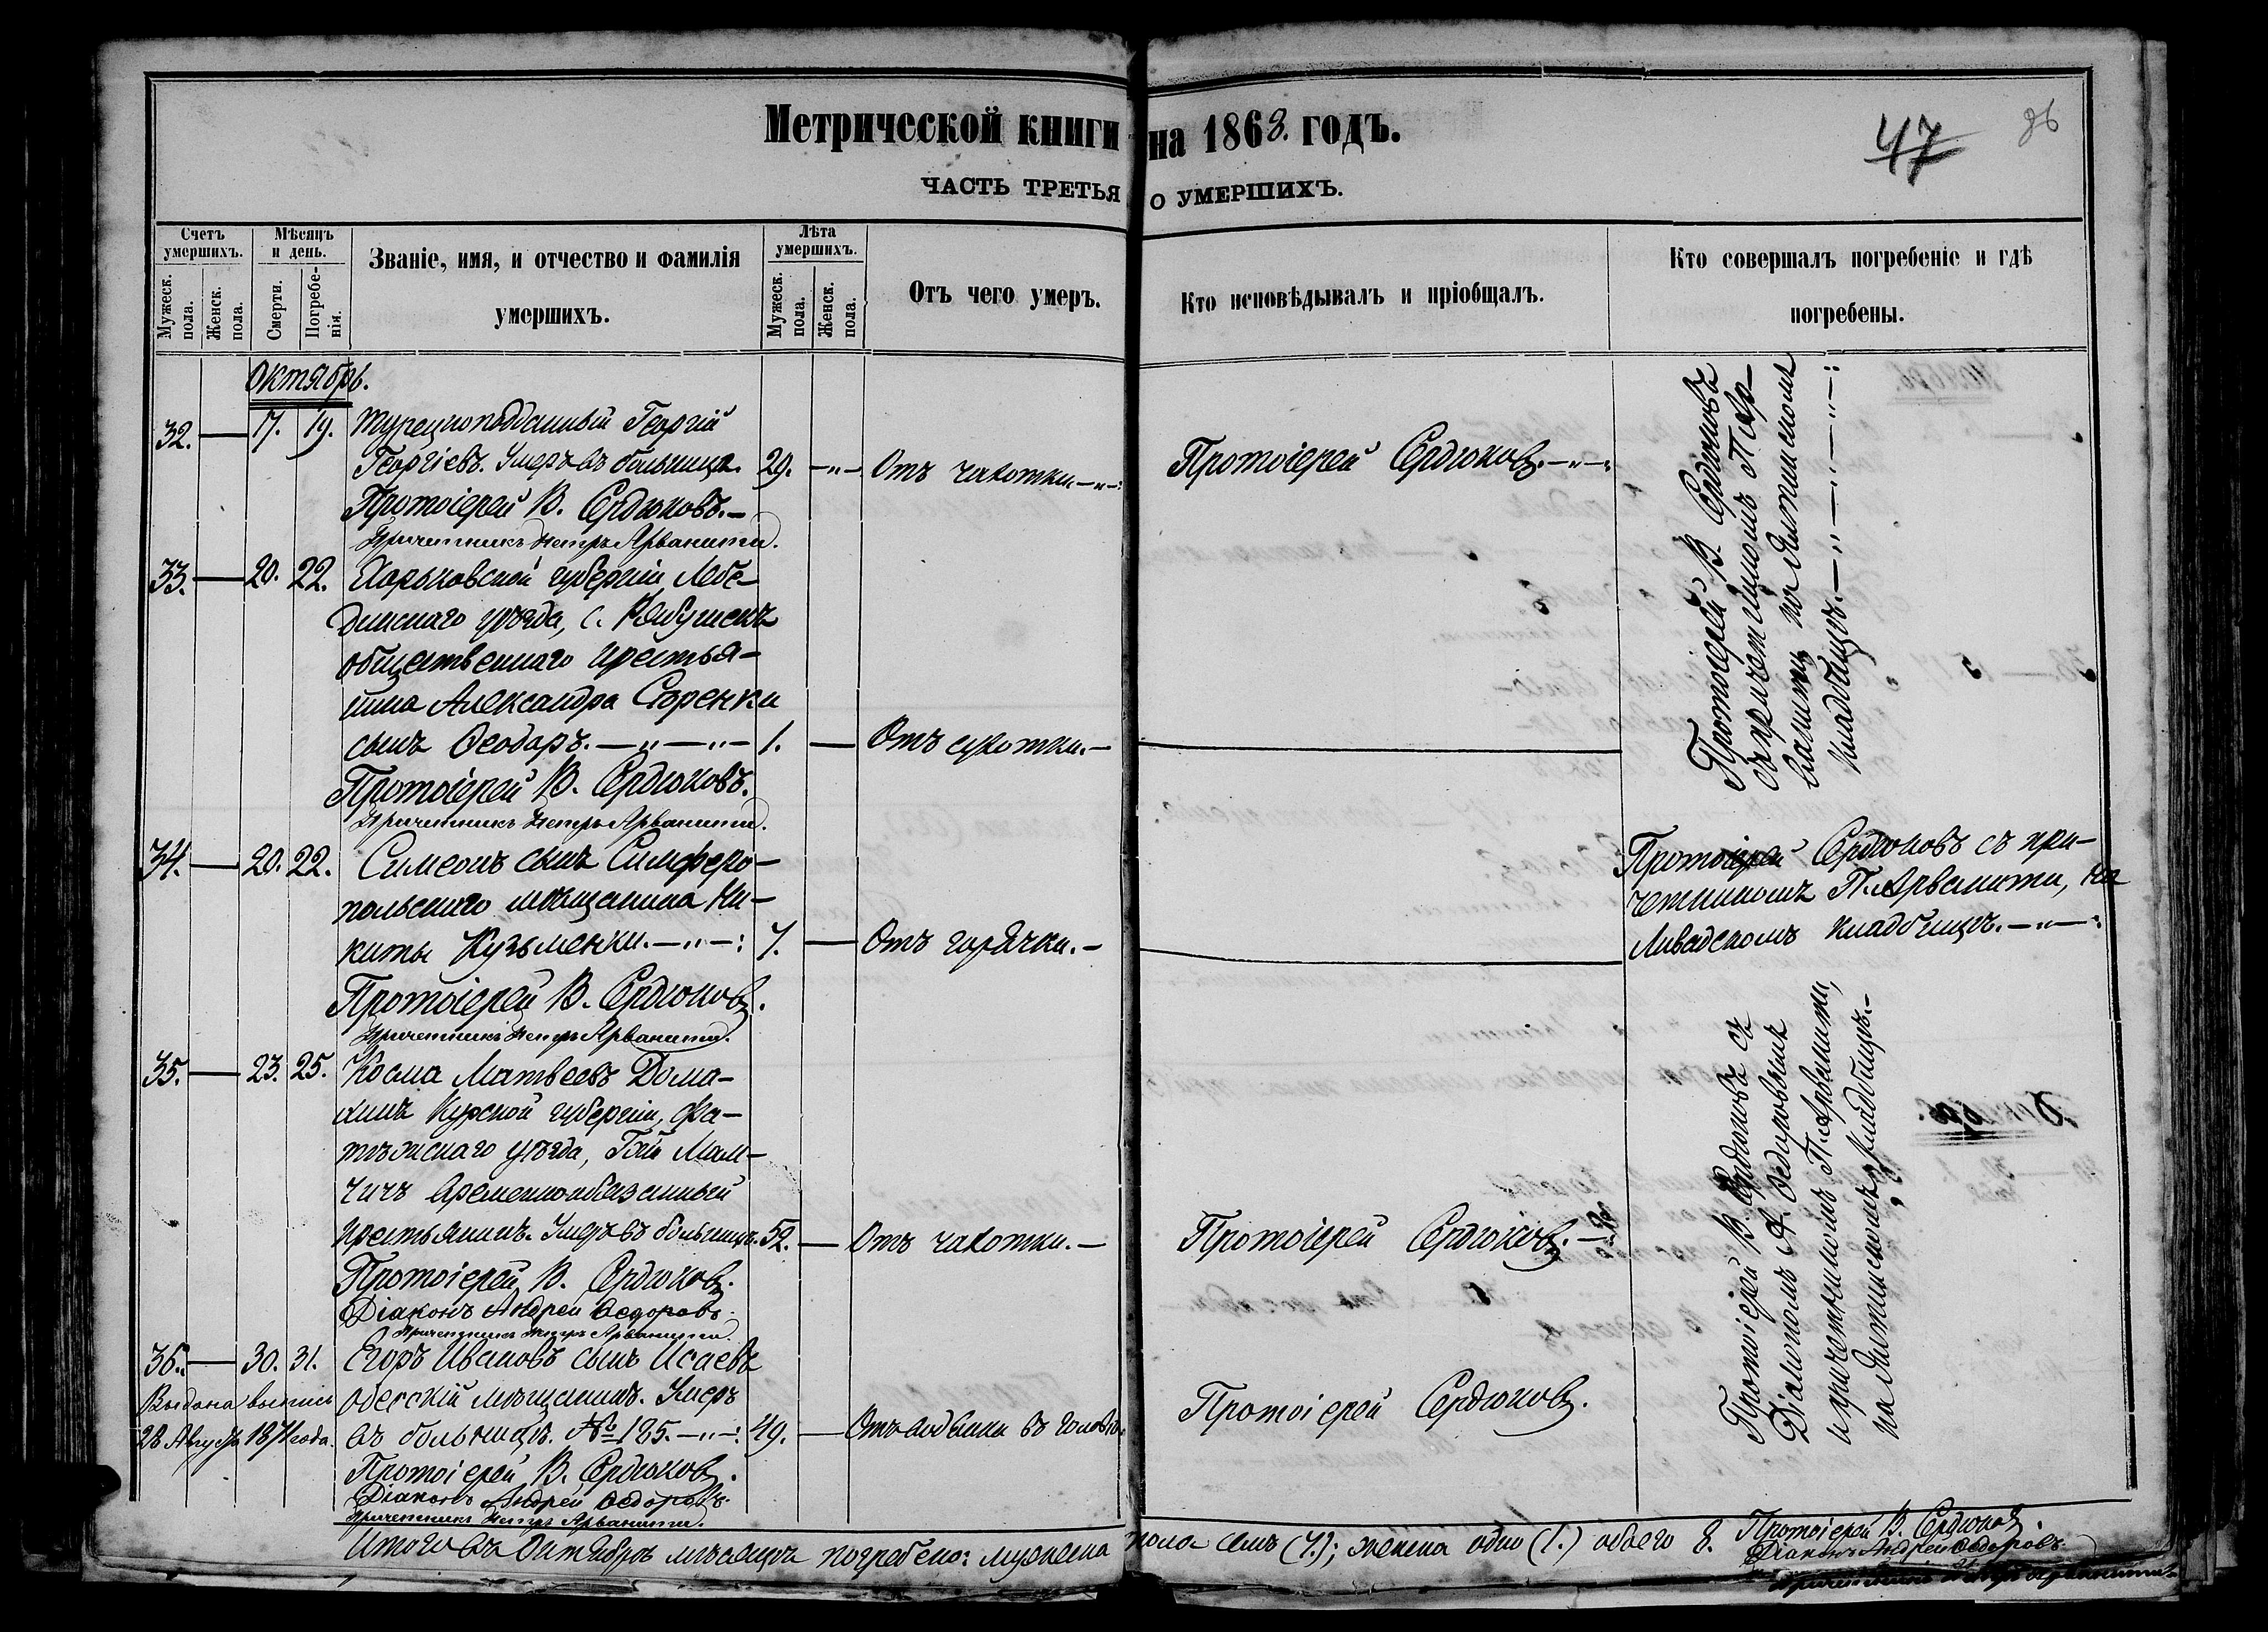 Метрической книги на 1868. годъ.
47
36
ЧАСТЬ ТРЕТЬЯ О УМЕРШИХЪ.
Счетъ умершихъ.
Мужеск. пола.
Женск. пола.
Мѣсяцъ и день.
Смерти.
Погребе-
нія.
Званіе, имя, и отчество и фамилія
умершихъ.
Лѣта умершихъ.
Мужеск. пола.
Женск. пола.
Отъ чего умеръ.
Кто исповѣдывалъ и пріобщалъ.
Кто совершалъ погребеніе и гдѣ
погребены.
Октябрь.
32. — 17. 19. Турецкоподданный Георгій
Георгіевъ. Умеръ въ больницѣ. 29. —"— Отъ чахотки.—"—: Протоіерей Сердюковъ.—"—:
Протоіерей В. Сердюковъ.—
Причетникъ Петръ Арванити.
33. — 20. 22. Харьковской губерніи Лебе-
динскаго уѣзда, с. Рябушекъ
общественнаго крестья-
нина Александра Сѣренки
сынъ Ѳеодоръ.—"—"— 1. — Отъ сухотки.—
Протоіерей В. Сердюковъ.
Причетникъ Петръ Арванити.
Протоіерей В. Сердюковъ
съ причетникомъ Петр.
Арванити на
кладбищѣ.—"—"—"—:
34. — 20. 22. Симеонъ сынъ Симферо-
польскаго мѣщанина Ни-
киты Кузьменки.—"—: 7. — Отъ горячки.—
Протоіерей В. Сердюковъ.
Причетникъ Петръ Арванити.
Протоіерей Сердюковъ съ при-
четникомъ П. Арванити, на
Ливадскомъ кладбищѣ.—"—:
35. — 23. 25. Косма Матвеевъ Дома-
хинъ Курской губерніи, Фа-
тѣжскаго уѣзда,
временнообязанный
крестьянинъ. Умеръ въ больницѣ. 52. — Отъ чахотки.— Протоіерей Сердюковъ.—
Протоіерей В. Сердюковъ.
Діаконъ Андрей Ѳедоровъ.
Причетникъ Петръ Арванити.
36. — 30. 31. Егоръ Ивановъ сынъ Исаевъ
Выдана выпись
одесскій мѣщанинъ. Умеръ
28 Августа 1871 года.
въ больницѣ. № 185.—"—: 49. — Отъ водянки въ головѣ. Протоіерей Сердюковъ.
Протоіерей В. Сердюковъ.
Діаконъ Андрей Ѳедоровъ.
Причетникъ Петръ Арванити.
Протоіерей В. Сердюковъ съ
Діакономъ А. Ѳедоровымъ
и причетникомъ П. Арванити,
на кладбищѣ.—
Итого въ Октябрѣ мѣсяцѣ погребено: мужеска пола семь (7.); женска одно (1.) обоего 8. Протоіерей В. Сердюковъ.
Діаконъ Андрей Ѳедоровъ.
Причетникъ Петръ Арванити.